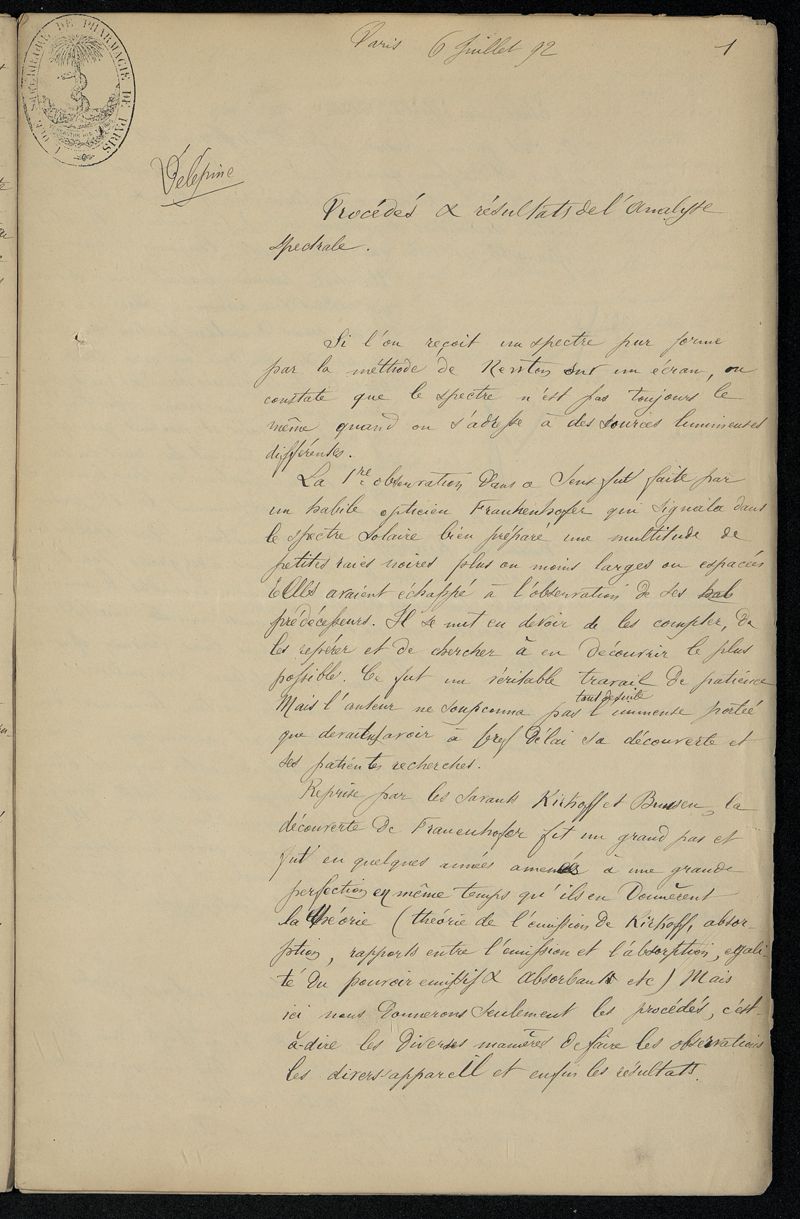 Paris 6 Juillet 92 1
ÉCOLE SUPÉRIEURE DE PHARMACIE DE PARIS
Délépine
Procédés & résultats de l'Analyse
spectrale.
Si l'on reçoit un spectre pur formé
par la méthode de Newton sur un écran, on
constate que le spectre n'est pas toujours le
même quand on s'adresse à des sources lumineuses
différentes.
La 1re observation dans ce sens fut faite par
un habile opticien Frauhenhofer qui signala dans
le spectre solaire bien préparé une multitude de
petites raies noires plus ou moins larges ou espacées
Elles avaient échappé à l'observation de ses hab
prédécesseurs. Il se mit en devoir de les compter, de
les repérer et de chercher à en découvrir le plus
possible. Ce fut un véritable travail de patience
tout de suite
Mais l'auteur ne soupçonna pas l'immense portée
que devait avoir à bref délai sa découverte et
ses patientes recherches.
Reprise par les savants Kirkoff et Bunsen, la
découverte de Frauenhofer fit un grand pas et
fut en quelques années amenée à une grande
perfection en même temps qu'ils en donnèrent
la théorie (théorie de l'émission de Kirkoff, absor-
ption, rapports entre l'émission et l'absorption, égali-
té du pouvoir émissif & absorbant etc) Mais
ici nous donnerons seulement les procédés, c'est-
à-dire les diverses manières de faire les observations
les divers appareil et enfin les résultats.